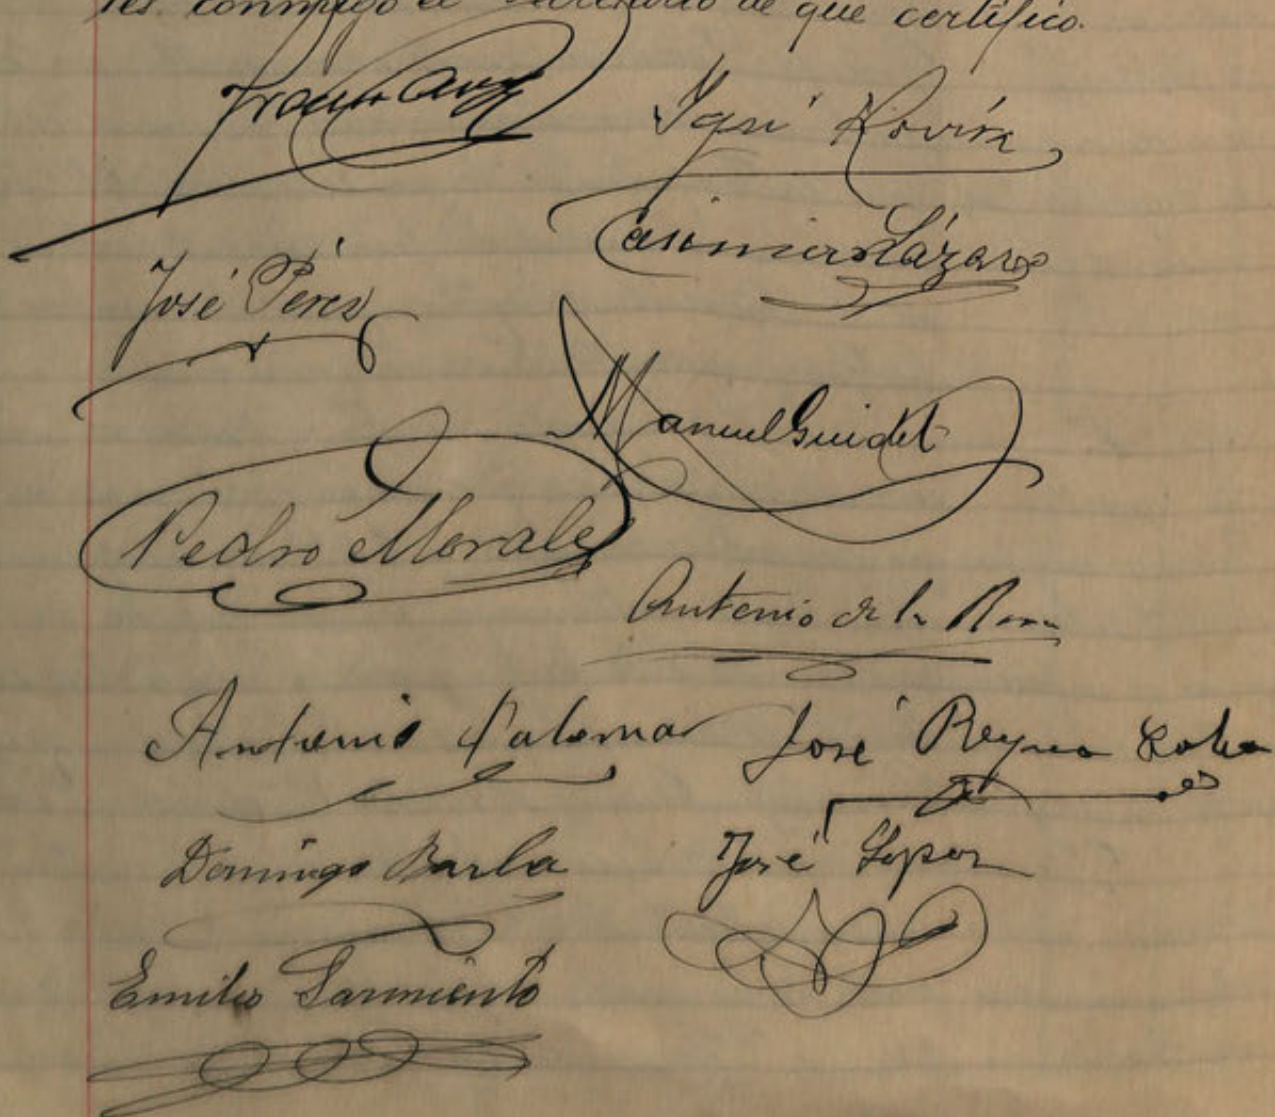 res conmigo el Secretario de que certifico.
José Rovira
Casimiro Lázaro
José Pérez
Manuel Guidet
Pedro Morales
Antonio de la Rosa
Antonio Palomar José Reyna
Domingo Barba José López
Emilio Sarmiento